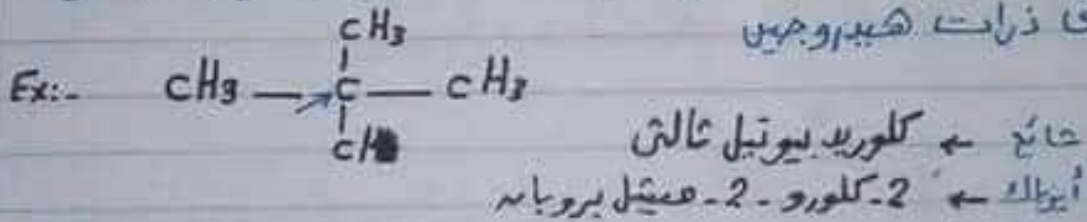 ذرات هيدروجين
CH3
Ex:- CH3 — C — CH3
Cl
شائع ← كلوريد بيوتيل ثالثى
أيوباك ← 2-كلورو-2-ميثيل بروبان